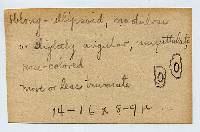 Oblong-ellipsoid, nodulose
or slightly angular, uniguttulate,
rose-colored
more or less truncate
14-16 x 8-9 µ